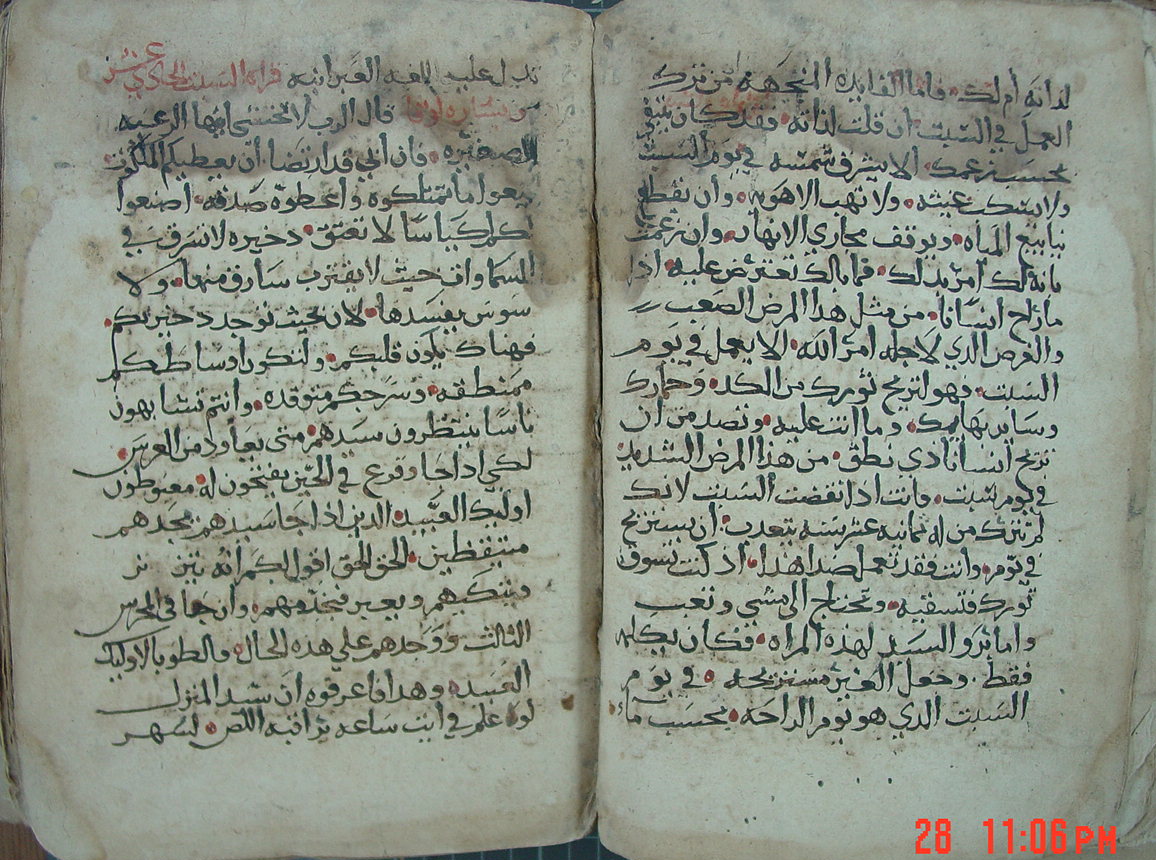 لذاته أم لك • فاما الفايده المتجهة من ترك
العمل في السبت ان قلت لذاته • فقد كان ينبغي
بحسب زعمك • الا يشرق شمسه في يوم السبت
ولا يسكب غيثه • ولا تهب الاهويه • وان تقطع
ينابيع المياه • ويوقف مجاري الانهار • وان زعمت
بانه لك امر بذلك • فما بالك تعترض عليه • اذا
ما زاح انسانا • من مثل هذا المرض الصعب
والغرض الذي لاجله امر الله • الا يعمل في يوم
السبت • فهو لتريح ثورك من الكد • وحمارك
وساير بهايمك • وما انت عليه • وتصد من ان
تريح انسانا ذي نطق • من هذا المرض الشديد
في يوم سبت • وانت اذا نقضت السبت لانك
لم تترك من له ثمانيه عشر سنه يتعدب • ان يستريح
في يوم • وانت فقد تعمل ضد هذا • اذ كنت تسوق
ثورك فتسقيه • وتحتاج الى مشي وتعب
واما برو السيد لهذه المراه • فكان بكلمه
فقط • وجعل الغير مستريحه • في يوم
السبت الذي هو يوم الراحه • بحسب ما
تدل عليه باللغه العبرانيه قراه السبت الحادي عشر
من بشاره لوقا قال الرب لا تخشى ايتها الرعيه
الصغيره • فان ابي قد ارتضا ان يعطيكم الملكوت
بيعوا ما تمتلكوه واعطوه صدقه • اصنعوا
لكم كياسا لا تعتق • ذخيره لا تسرق في
السماوات حيث لا يقترب سارق منها • ولا
سوس يفسدها • لان بحيث توجد ذخيرتكم •
فهناك يكون قلبكم • ولتكون اوساطكم
ممنطقه • وسرجكم متوقده • وانتم تشابهون
ناسا ينتظرون سيدهم • متى يعاود من العرس •
لكي اذا جا وقرع في الحين يفتحون له • مغبوطون
اوليك العبيد • الذين اذا جا سيدهم يجدهم
متيقظين • الحق الحق اقول لكم انه يتزنر
ويتكيهم ويعبر فيخدمهم • وان جا في المحرس
الثالث ووجدهم على هذه الحال • فالطوبا لاوليك
العبيد • وهذا فاعرفوه ان سيد المنزل
لو علم في ايت ساعه يراقبه اللص • لسهر
28 11:06 PM